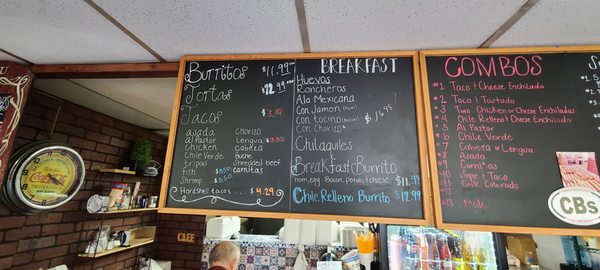 Burritos $11.99
Tortas $12.99
Tacos $3.10
asada Chorizo
Al pastor Lengua $3.50
Chicken Cabeza
Chile Verde Buche
tripas Shredded beef
Fish carnitas
Shrimp
Hardshell tacos .... $4.29
BREAKFAST
Huevos
Rancheros
Ala Mexicana
con Jamon
con tocino
con Chorizo
$16.99
Chilaquiles
Breakfast Burrito
Ham, egg, Bacon, potato & cheese $11.99
Chile Relleno Burrito $12.99
COMBOS
#1 Taco & Cheese Enchilada
#2 Taco & Tostada
#3 Two Chicken or Cheese Enchiladas
#4 Chile Relleno & Cheese Enchilada
#5 Al Pastor
#6 Chile Verde
#7 Cabeza or Lengua
#8 Asada
#9
#10
#11 Sope & Taco
#12 Chile Colorado
CBs
CAFE